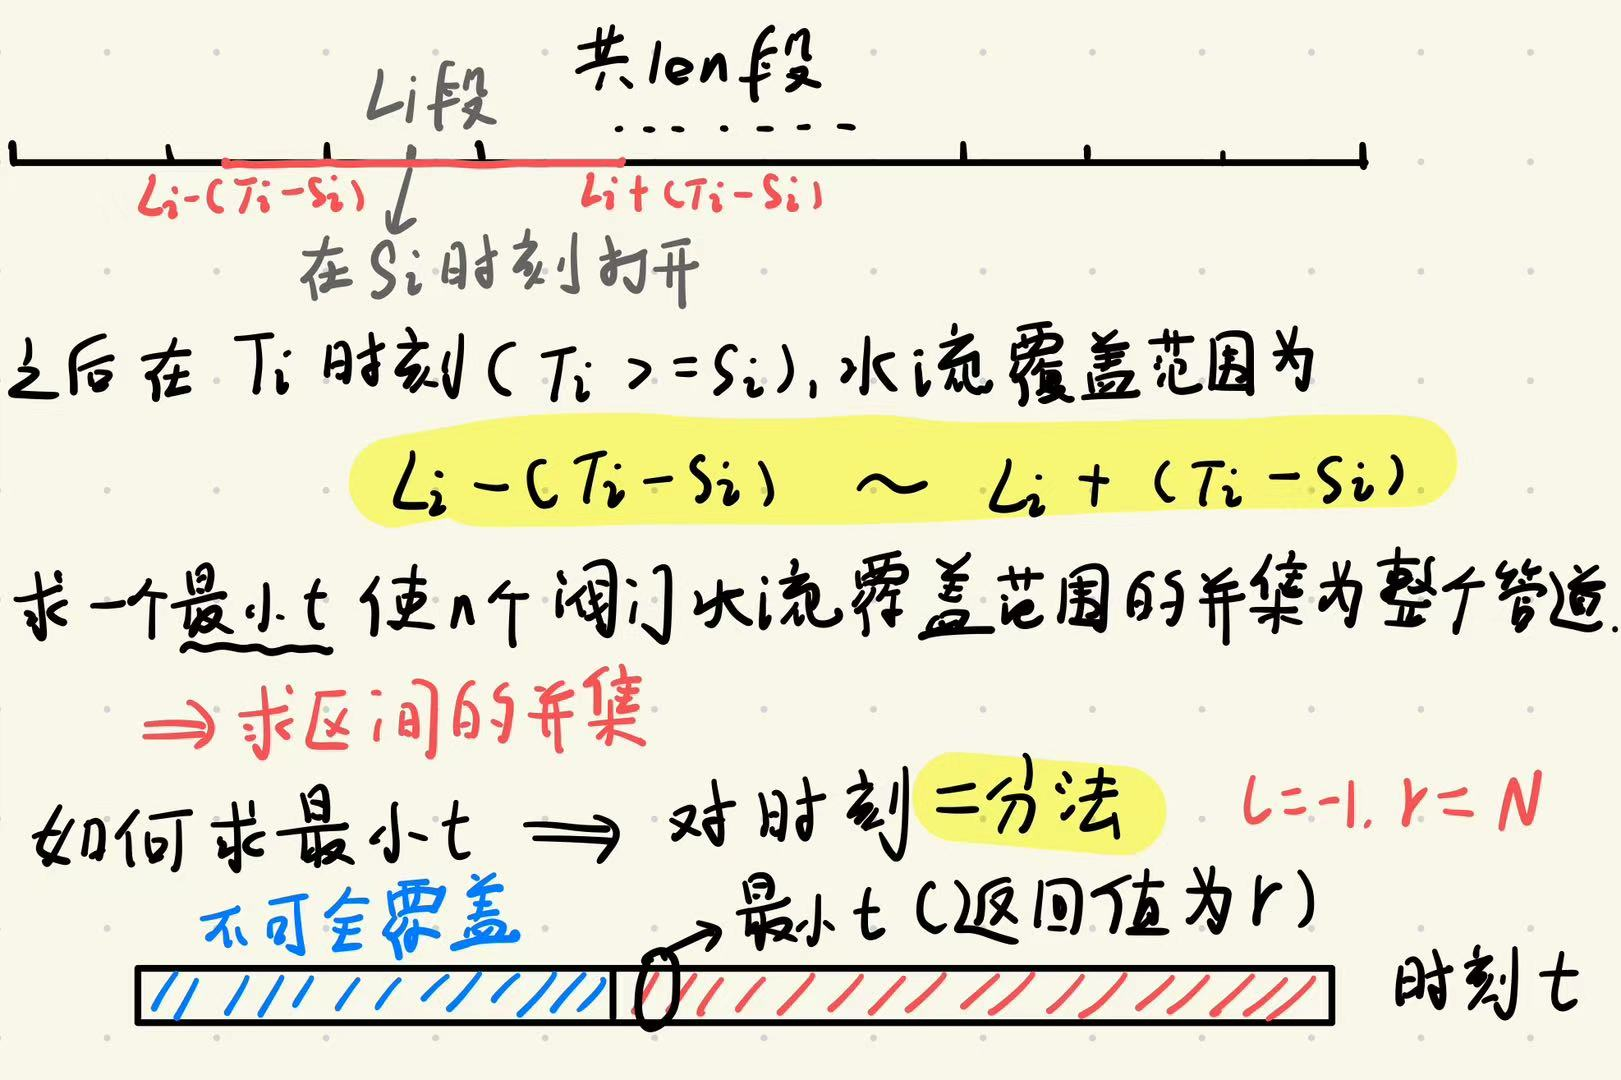 共len段
Li段
Li-(Ti-Si) Li+(Ti-Si)
在Si时刻打开
之后在 Ti时刻(Ti>=Si),水流覆盖范围为
Li-(Ti-Si) ~ Li+(Ti-Si)
求一个最小t使n个阀门水流覆盖范围的并集为整个管道.
⇒求区间的并集
如何求最小t ⇒ 对时刻二分法 l=-1, r=N
不可全覆盖 最小t(返回值为r)
时刻t